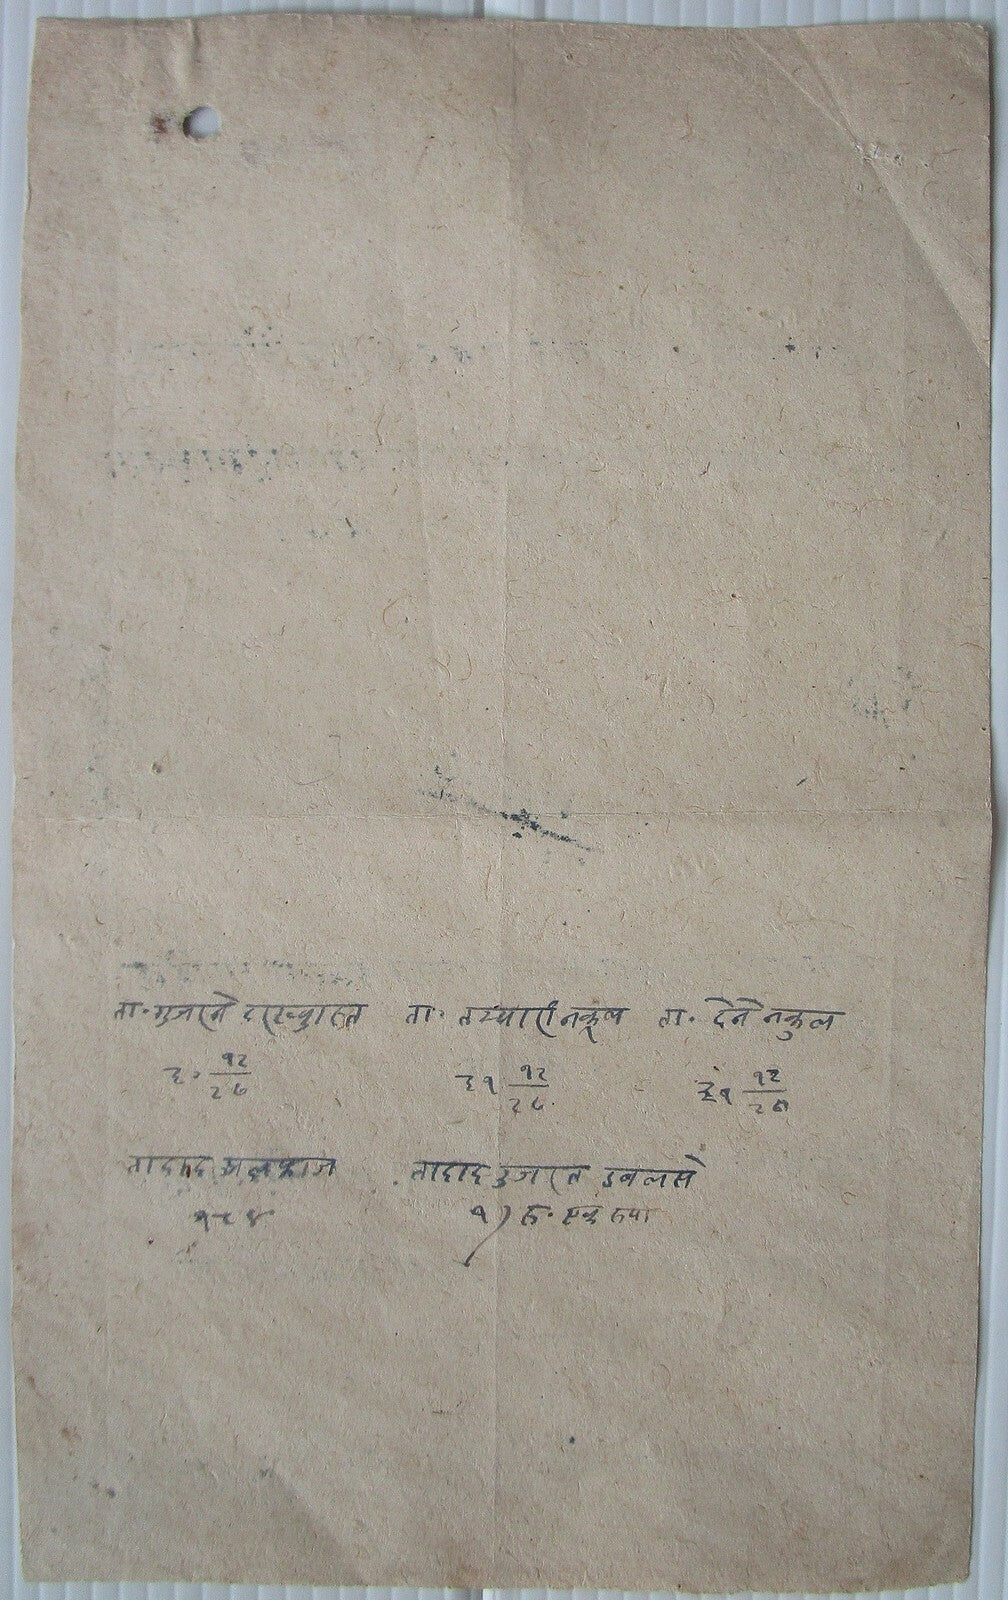 ता. गुजरने दरख्वास्त ता. तय्यारी नकल ता. देने नकुल
३० १२/२६ ३१ १२/२६ ३१ १२/२६
तादाद अलफाज तादाद उजरत डबलसे
१२४ १) रु. एक रुपा